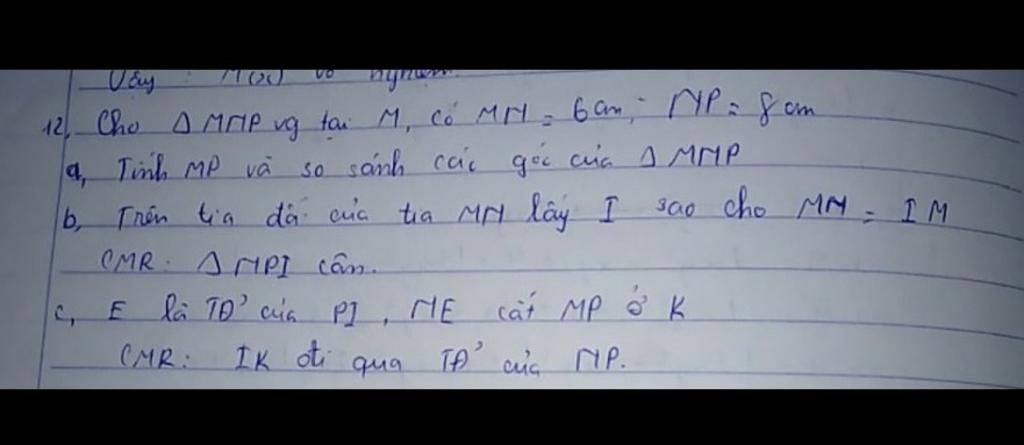 Vậy M(x) vô nghiệm
12, Cho Δ MNP vg tại M, có MN = 6cm; NP = 8cm
a, Tính MP và so sánh các góc của Δ MNP
b, Trên tia đối của tia MN lấy I sao cho MN = IM
CMR: Δ NPI cân.
c, E là TĐ' của PI, NE cắt MP ở K
CMR: IK đi qua TĐ' của NP.